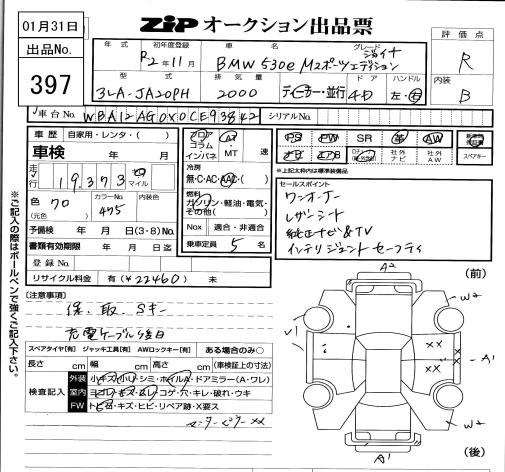 01月31日
ZIP オークション出品票
出品No.
397
年式 初年度登録 車名 グレード
R2年11月 BMW 530e Mスポーツエディション
型式 排気量 ドア ハンドル
3LA-JA20PH 2000 ディーラー・並行 4D 左・右
評価点
R
内装
B
車台No. WBA12AG0X0CE93842 シリアルNo.
車歴 自家用・レンタ( )
車検 年 月
走行 19,373 マイル
色 70 カラーNo. 475 内装色
(元色)
予備検 年 月 日(3・8)No.
書類有効期限 年 月 日迄
登録No.
リサイクル料金 有(¥22460) 未
フロア コラム インパネ AT・MT 速
冷房
無・C・AC・AAC・( )
燃料
ガソリン・軽油・電気・その他( )
Nox 適合・非適合
乗車定員 5 名
PS PW SR 革 AW
ナビ エアB 社外ナビ 社外AW
スペアキー
*上記太枠内は標準装備品
セールスポイント
ワンオーナー
レザーシート
純正ナビ&TV
インテリジェントセーフティ
※ご記入の際はボールペンで強くご記入下さい。
[注意事項]
保、取、Sキー
充電ケーブル後日
スペアタイヤ[有] ジャッキ工具[有] AWロックキー[有] ある場合のみ○
長さ cm 幅 cm 高さ cm (車検証上の寸法)
検査記入
外装 小キズ・小凹・シミ・ホイルA・ドアミラー(A・ワレ)
室内 ヨゴレ・キズ・スレ・コゲ・穴・キレ・破れ・ウキ
FW トビ石・キズ・ヒビ・リペア跡・X要ス
センターピラーXX
(前)
A2
W2
V1
XX
XX
A1
W2
A1
(後)